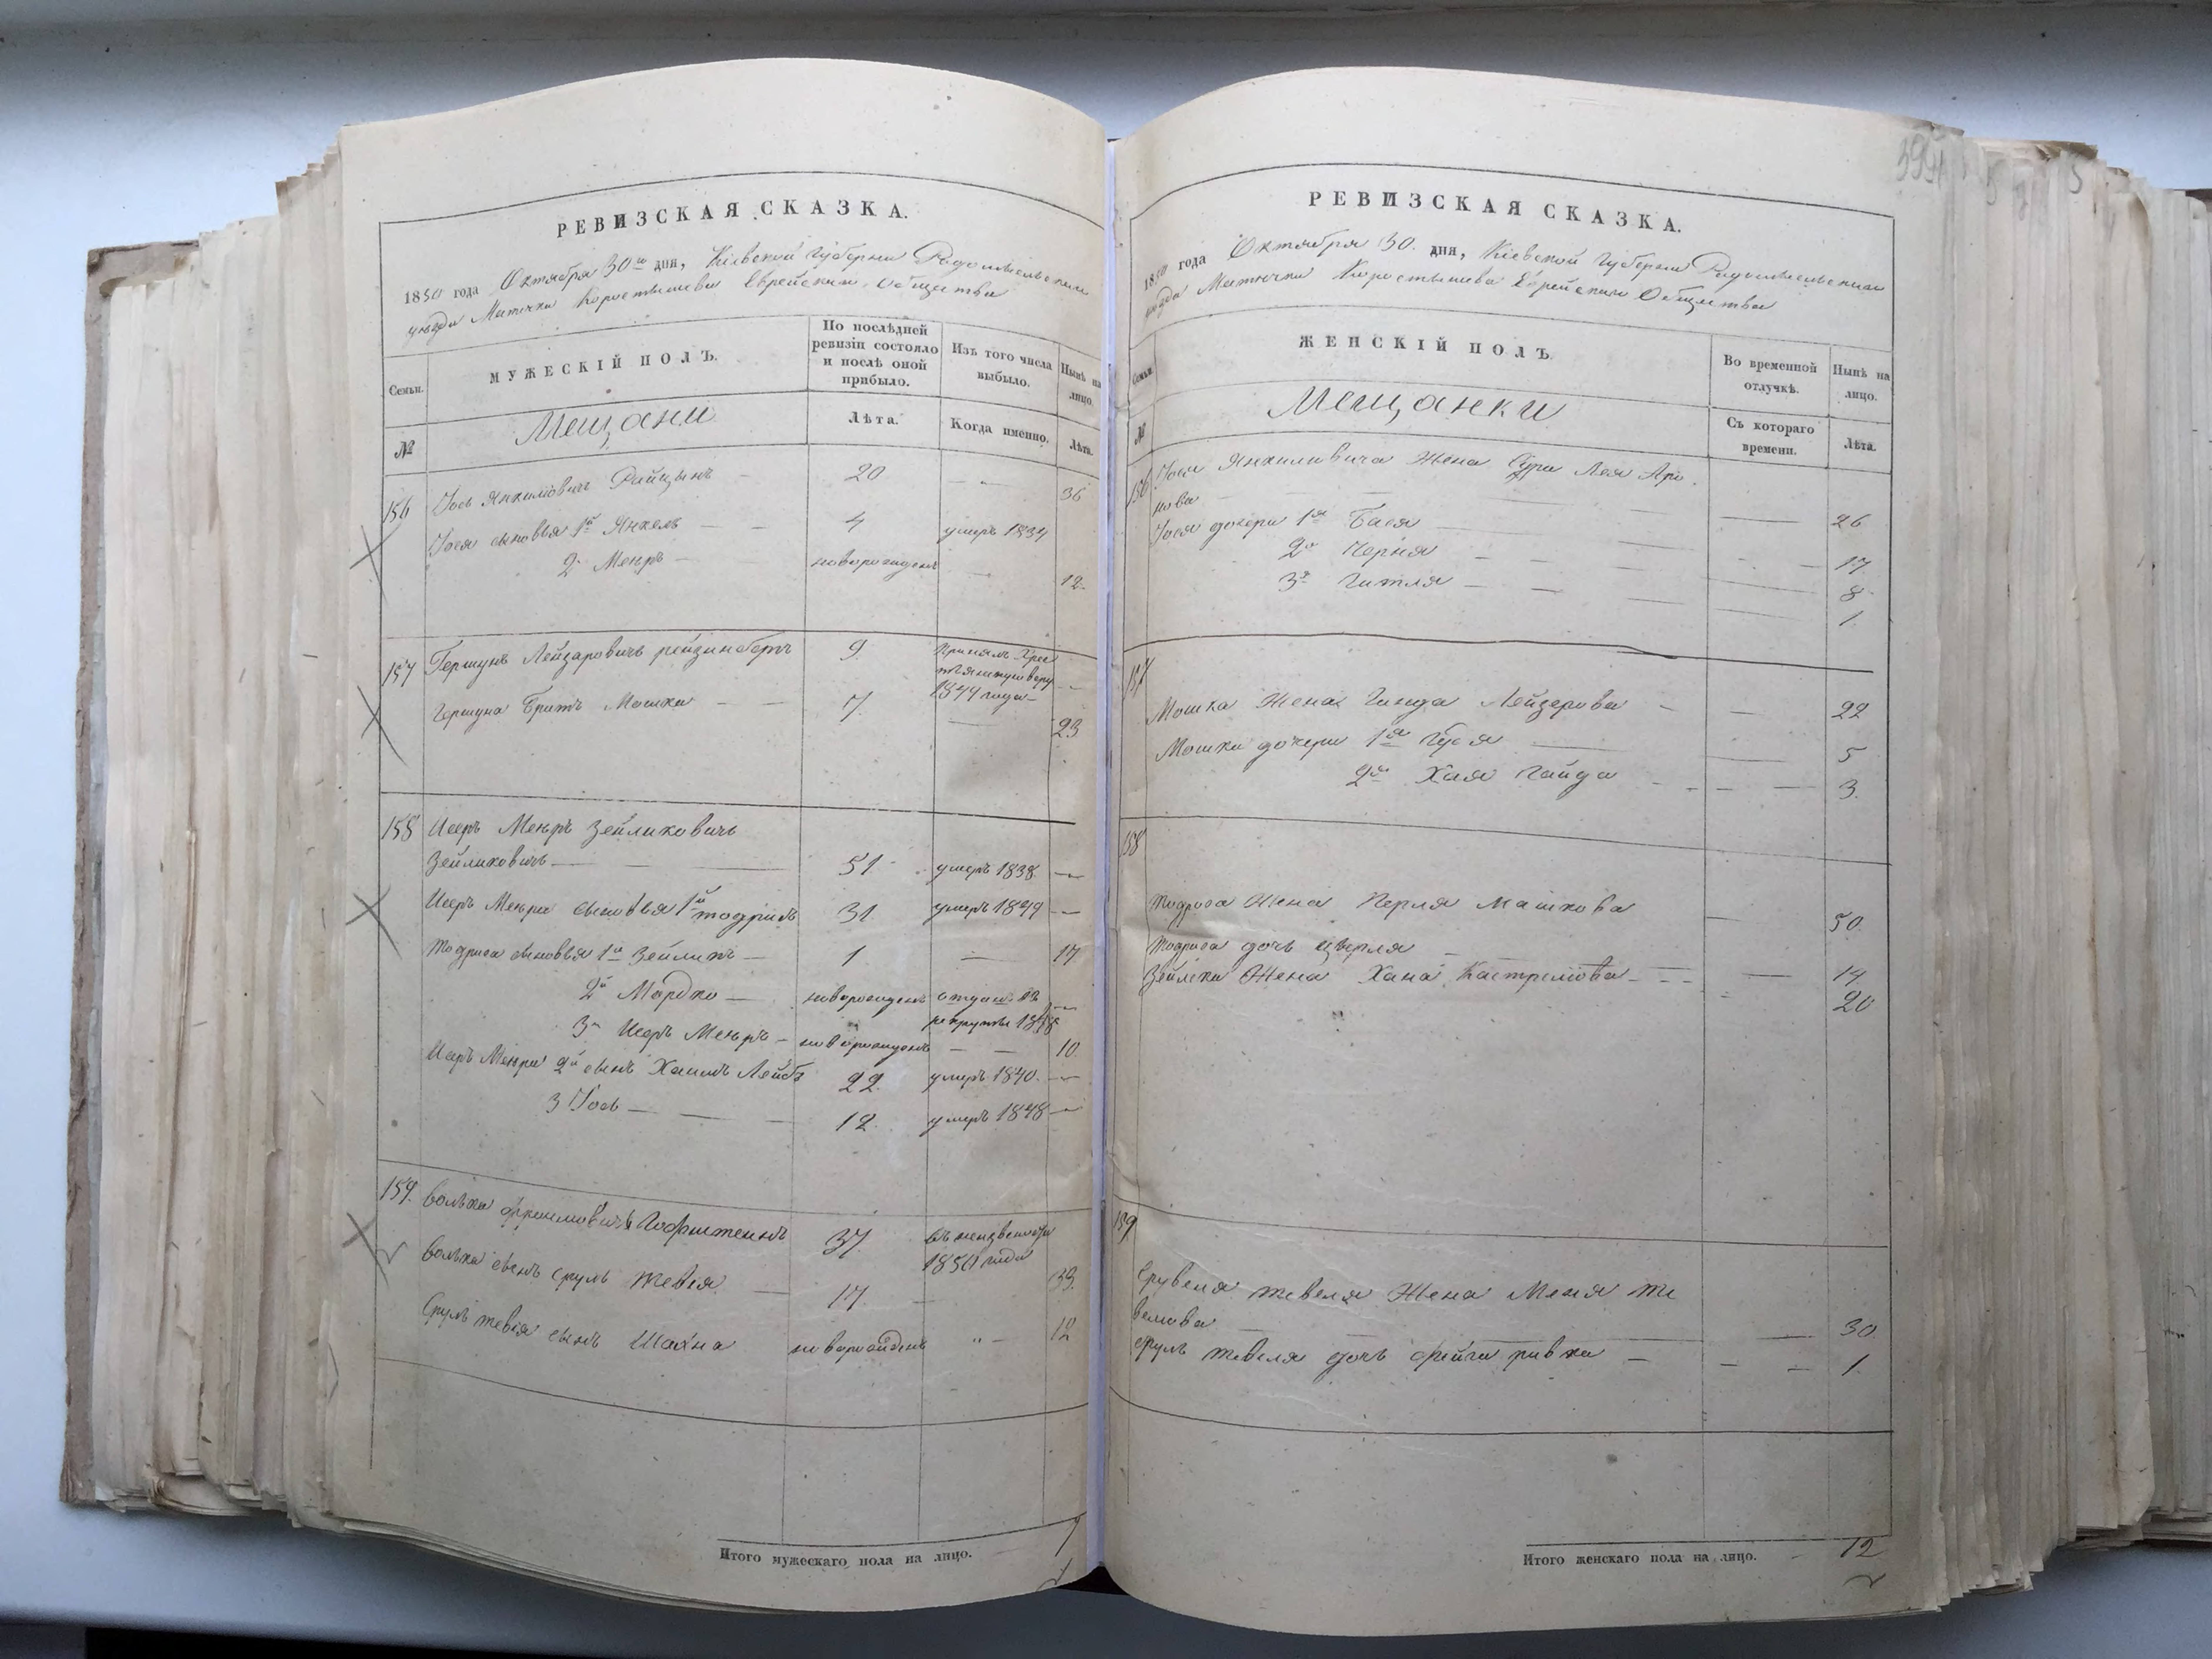 РЕВИЗСКАЯ СКАЗКА.
1850 года Октября 30го дня, Кіевской Губерніи Радомысльскаго
уезда Мѣстечка Коростышева Еврейскаго Общества
Семьи.
МУЖЕСКІЙ ПОЛЪ.
По послѣдней ревизіи состояло и послѣ оной прибыло.
Изъ того числа выбыло.
Нынѣ на лицо.
№
Мещани
Лѣта.
Когда именно.
Лѣта.
156 Іось Янкилювичъ Райцынъ — 20 — 36
Іося сыновья 1й Янкель — — 4 умеръ 1834
2 Меиръ — новорожденъ — 12.
157 Гершунъ Лейзаровичъ рейзинбергъ 9. Принялъ Хрис
тіянскую веру
1844 года —
Гершуна братъ Мошка — — 7. — 23
158 Исеръ Меиръ Зейликовичъ
Зейликовичъ — — 51 умеръ 1838. —
Исеръ Меира сыновья 1й тодрисъ 31 умеръ 1849 —
Тодриса сыновья 1й Зейликъ — 1 — 17
2й Мордко — новорожденъ отданъ въ
рекруты —
3й Исеръ Меиръ — новорожденъ — — 10.
Исеръ Меира 2й сынъ Хаимъ Лейбъ 22. умеръ 1840. —
3 Іось — — 12. умеръ 1848 —
159. Волька Фроимовичъ Гофштеинъ 37. въ неизвестности
1850 года
Волька сынъ Сруль Тевія — 17. — 33.
Сруль тевія сынъ Шахна новорожденъ " — 12
Итого мужескаго пола на лицо. 7
394
РЕВИЗСКАЯ СКАЗКА.
1850 года Октября 30. дня, Кіевской Губерніи Радомысльскаго
уезда Мѣстечка Коростышева Еврейскаго Общества
Семьи.
ЖЕНСКІЙ ПОЛЪ.
Во временной отлучкѣ.
Нынѣ на лицо.
№
Мещанки
Съ котораго времени.
Лѣта.
156 Іося Янкилювича Жена Сура Лея Аро
нова — — — 26
Іося дочери 1я Бася — — 17
2я Черня — — — 8
3я Гитля — — — 1
157
Мошка Жена Гинда Лейзерова — — 22
Мошки дочери 1я — — 5
2я Хая Гайда — — — 3.
158
Тодроса Жена Перля Машкова — 50
Тодриса дочь Цверля — — 14
Зейлека Жена Хана — — 20
159
Срувеля тевеля Жена Меня те
велюва — — 30
Сруль тевеля дочь Фейга ривка — — — 1.
Итого женскаго пола на лицо. 12